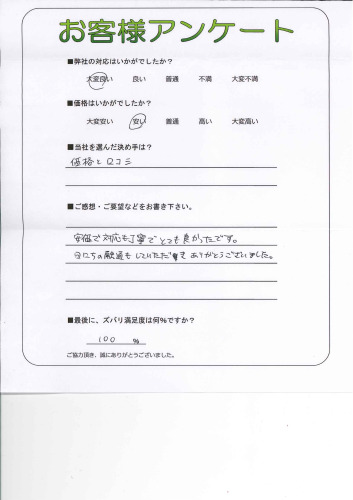 お客様アンケート
■弊社の対応はいかがでしたか？
大変良い 良い 普通 不満 大変不満
■価格はいかがでしたか？
大変安い 安い 普通 高い 大変高い
■当社を選んだ決め手は？
価格と口コミ
■ご感想・ご要望などをお書き下さい。
安価で対応も丁寧でとても良かったです。
日にちの融通もしていただき ありがとうございました。
■最後に、ズバリ満足度は何%ですか？
100 %
ご協力頂き、誠にありがとうございました。